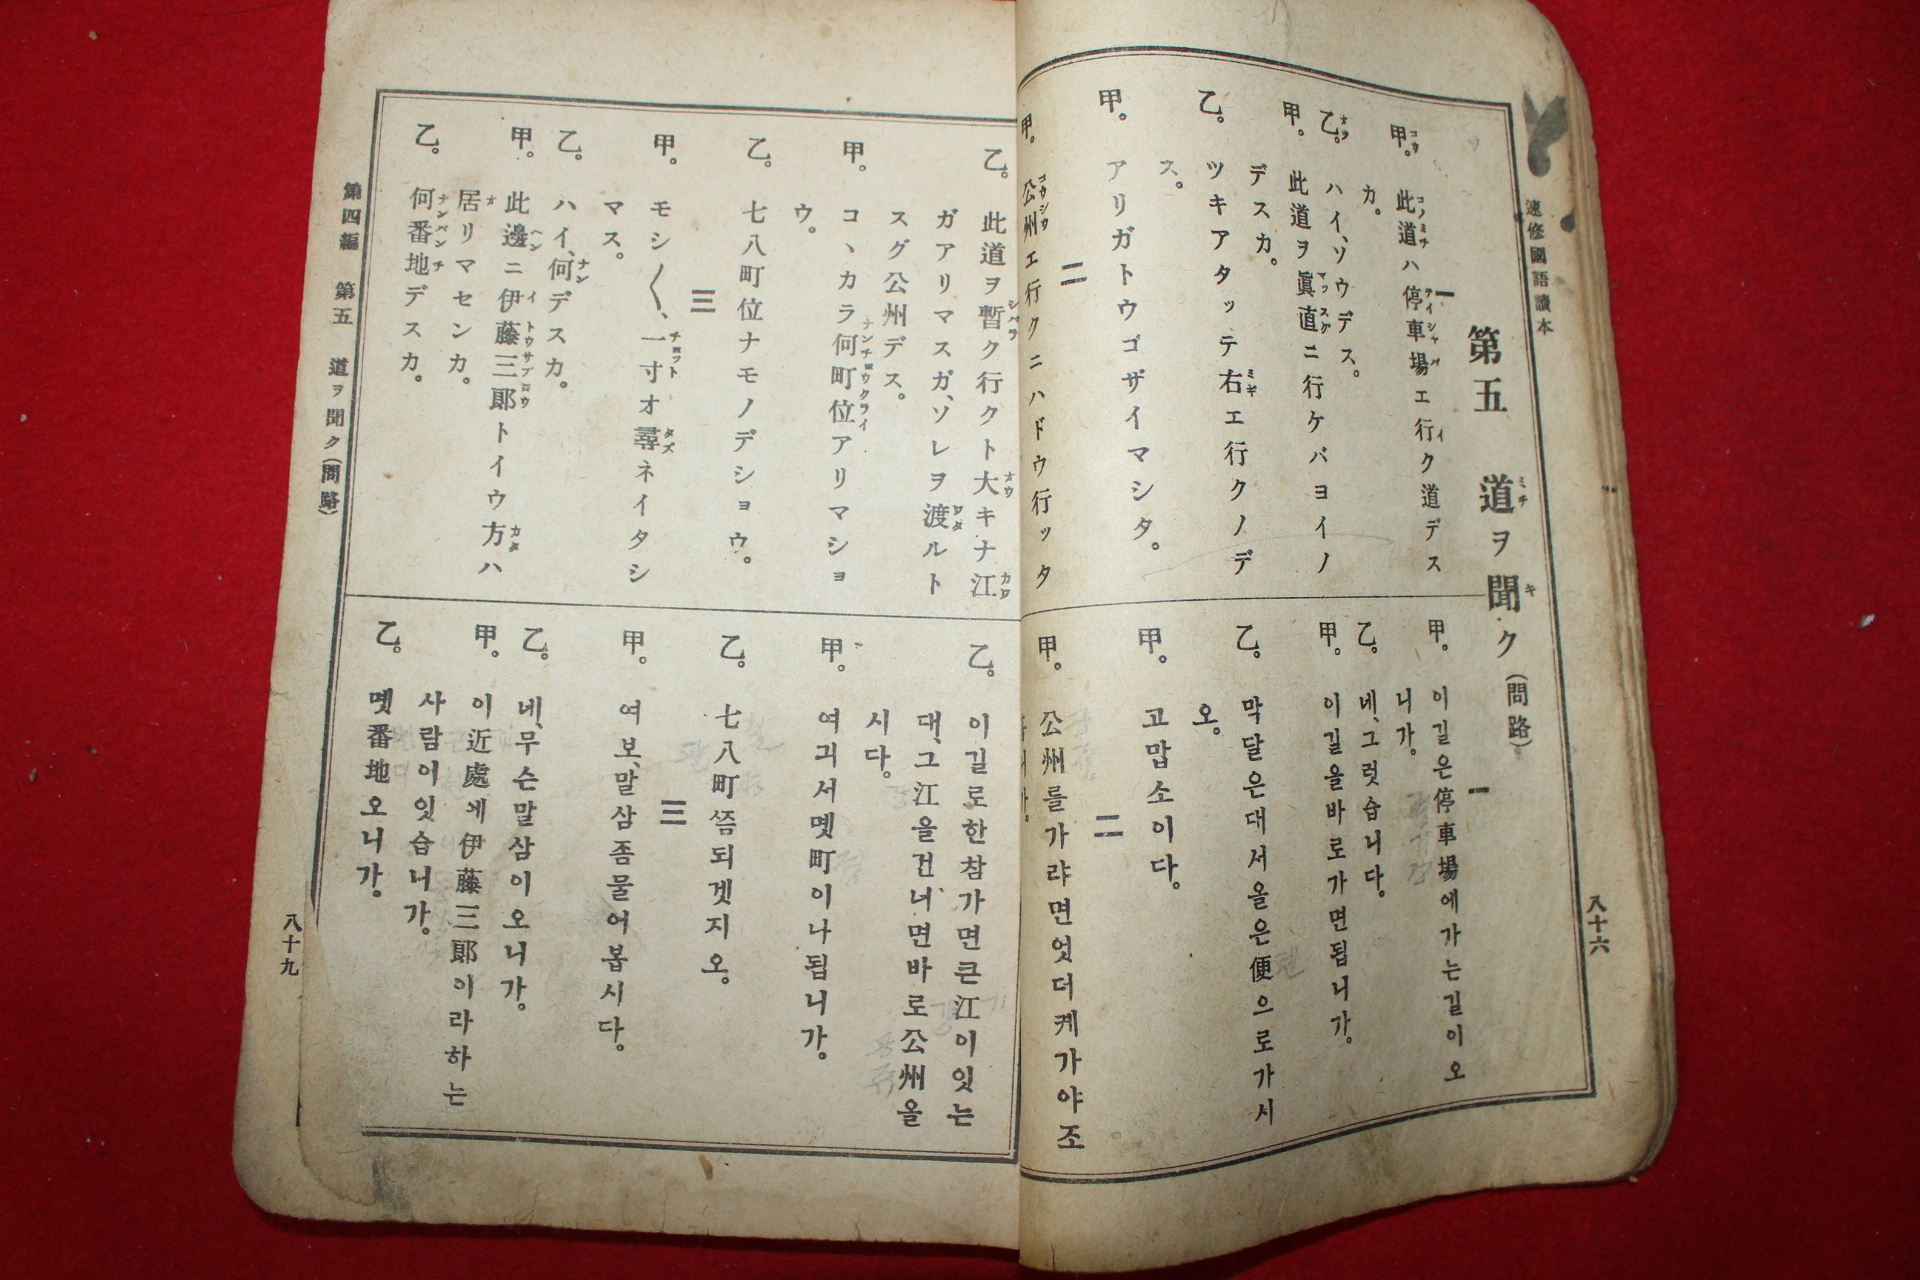 速修國語讀本
八十六
第五 道ヲ聞ク(問路)
一
甲。 此道ハ停車場エ行ク道デス
カ。
乙。 ハイ、ソウデス。
甲。 此道ヲ眞直ニ行ケバヨイノ
デスカ。
乙。 ツキアタッテ右エ行クノデ
ス。
甲。 アリガトウゴザイマシタ。
二
甲。 公州エ行クニハドウ行ッタ
一
甲。 이길은停車場에가는길이오
니가。
乙。 네、그럿습니다。
甲。 이길을바로가면됩니가。
乙。 막달은대서올은便으로가시
오。
甲。 고맙소이다。
二
甲。 公州를가랴면엇더케가야조
乙。 此道ヲ暫ク行クト大キナ江
ガアリマスガ、ソレヲ渡ルト
スグ公州デス。
甲。 コヽカラ何町位アリマショ
ウ。
乙。 七八町位ナモノデショウ。
三
甲。 モシ〱、一寸オ尋ネイタシ
マス。
乙。 ハイ、何デスカ。
甲。 此邊ニ伊藤三郞トイウ方ハ
居リマセンカ。
乙。 何番地デスカ。
乙。 이길로한참가면큰江이잇는
대、그江을건너면바로公州올
시다。
甲。 여긔서몟町이나됩니가。
乙。 七八町쯤되겟지오。
三
甲。 여보、말삼좀물어봅시다。
乙。 네、무슨말삼이오니가。
甲。 이近處에伊藤三郞이라하는
사람이잇습니가。
乙。 몟番地오니가。
第四編 第五 道ヲ聞ク(問路)
八十九